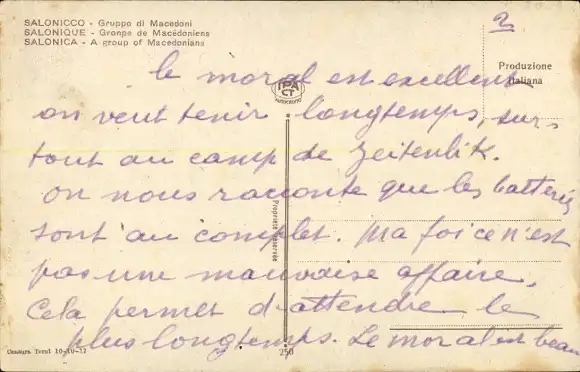 SALONICCO - Gruppo di Macedoni
SALONIQUE - Gronpe de Macédoniens
SALONICA - A group of Macedonians
2
Produzione
Italiana
IPA
CT
AUTOCROMO
le moral est excellent
on veut tenir longtemps, sur-
tout au camp de Zeitenlik.
on nous raconte que les batteries
sont au complet. Ma foi ce n'est
pas une mauvaise affaire.
Cela permet d'attendre le
plus longtemps. Le moral est beau
Proprietà riservata
Censura Torni 10-10-17
250